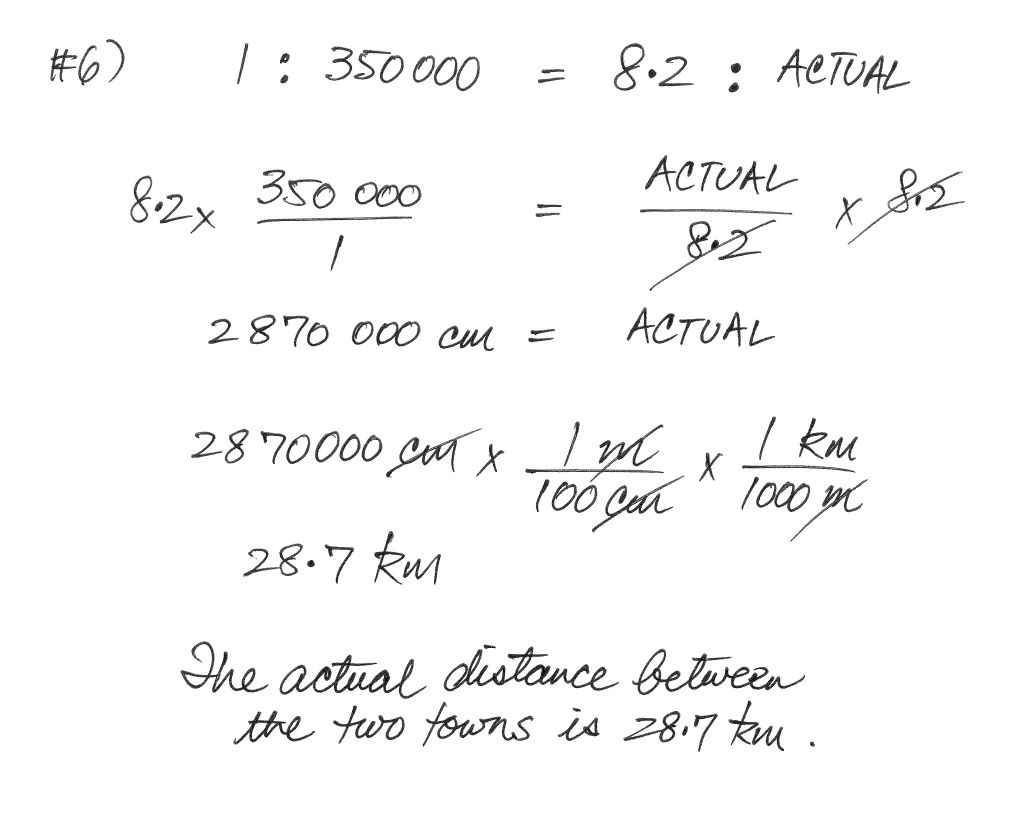 #6) 1 : 350 000 = 8.2 : ACTUAL
8.2 x 350 000 / 1 = ACTUAL / 8.2 x 8.2
2870 000 cm = ACTUAL
2870000 cm x 1 m / 100 cm x 1 km / 1000 m
28.7 km
The actual distance between
the two towns is 28.7 km.